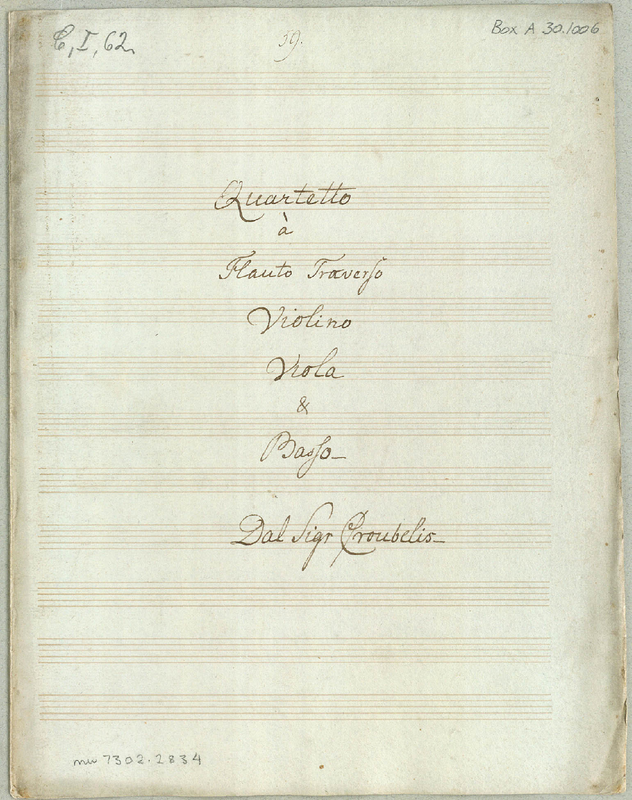 C, I, 62.
39.
Box A 30.1006
Quartetto
à
Flauto Traverſo
Violino
Viola
&
Baſſo
Dal Sigr Croubelis
mu 7302.2834